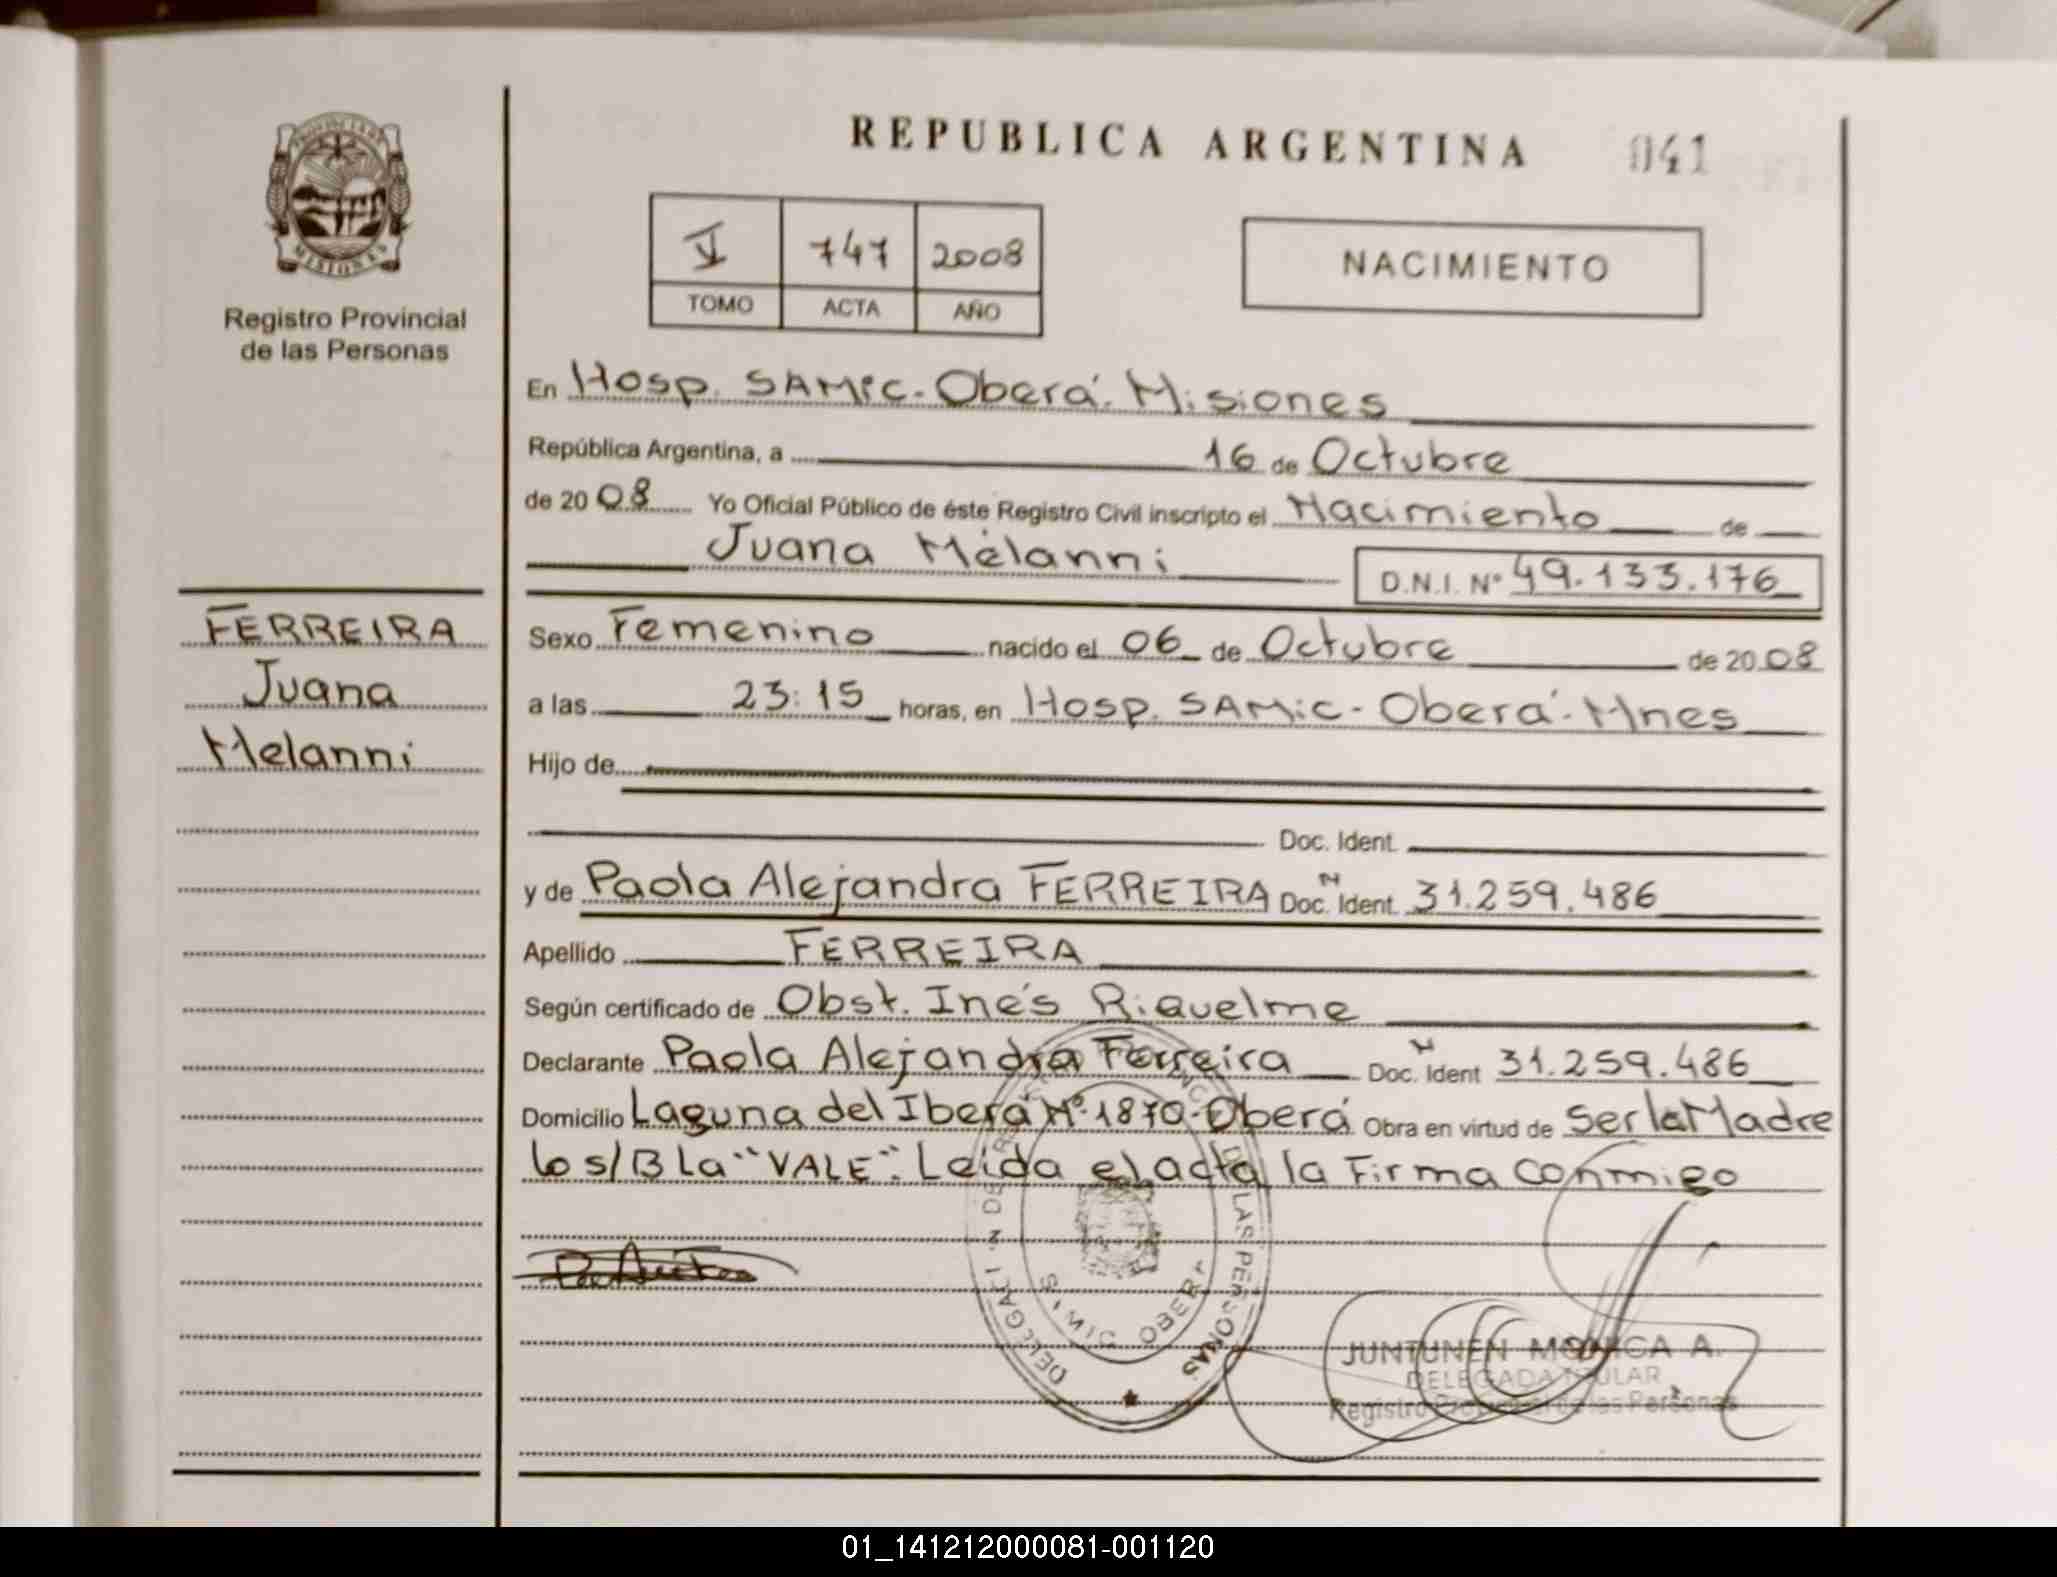 REPUBLICA ARGENTINA 041
PROVINCIA DE
MISIONES
Registro Provincial
de las Personas
V 747 2008
TOMO ACTA AÑO
NACIMIENTO
En Hosp. SAMiC - Oberá. Misiones
República Argentina, a 16 de Octubre
de 2008 Yo Oficial Público de éste Registro Civil inscripto el Nacimiento de
Juana Melanni D.N.I. Nº 49.133.176
FERREIRA
Juana
Melanni
Sexo Femenino nacido el 06 de Octubre de 2008
a las 23:15 horas, en Hosp. SAMiC - Oberá - Mnes
Hijo de
Doc. Ident.
y de Paola Alejandra FERREIRA Doc. N Ident. 31.259.486
Apellido FERREIRA
Según certificado de Obst. Inés Riquelme
Declarante Paola Alejandra Ferreira Doc. N Ident 31.259.486
Domicilio Laguna del Iberá Nº 1870 - Oberá Obra en virtud de Ser la Madre
Lo s/B La "VALE". Leida el acta la Firma conmigo
DELEGACION DE REGISTRO PROVINCIAL DE LAS PERSONAS
SAMIC OBERA
JUNTUNEN MONICA A.
DELEGADA TITULAR
Registro Provincial de las Personas
01_141212000081-001120